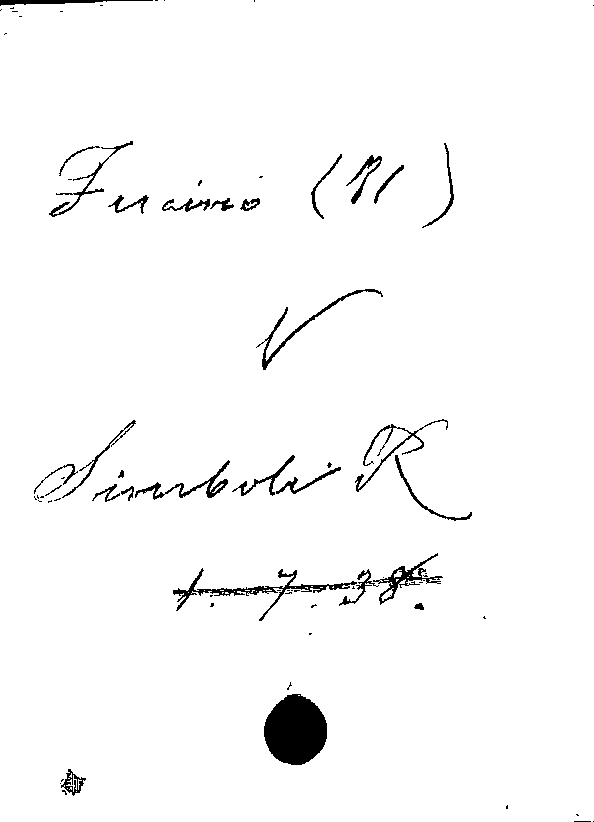 Fuaineo (R)
V
Simboli R
1. 7. 38.